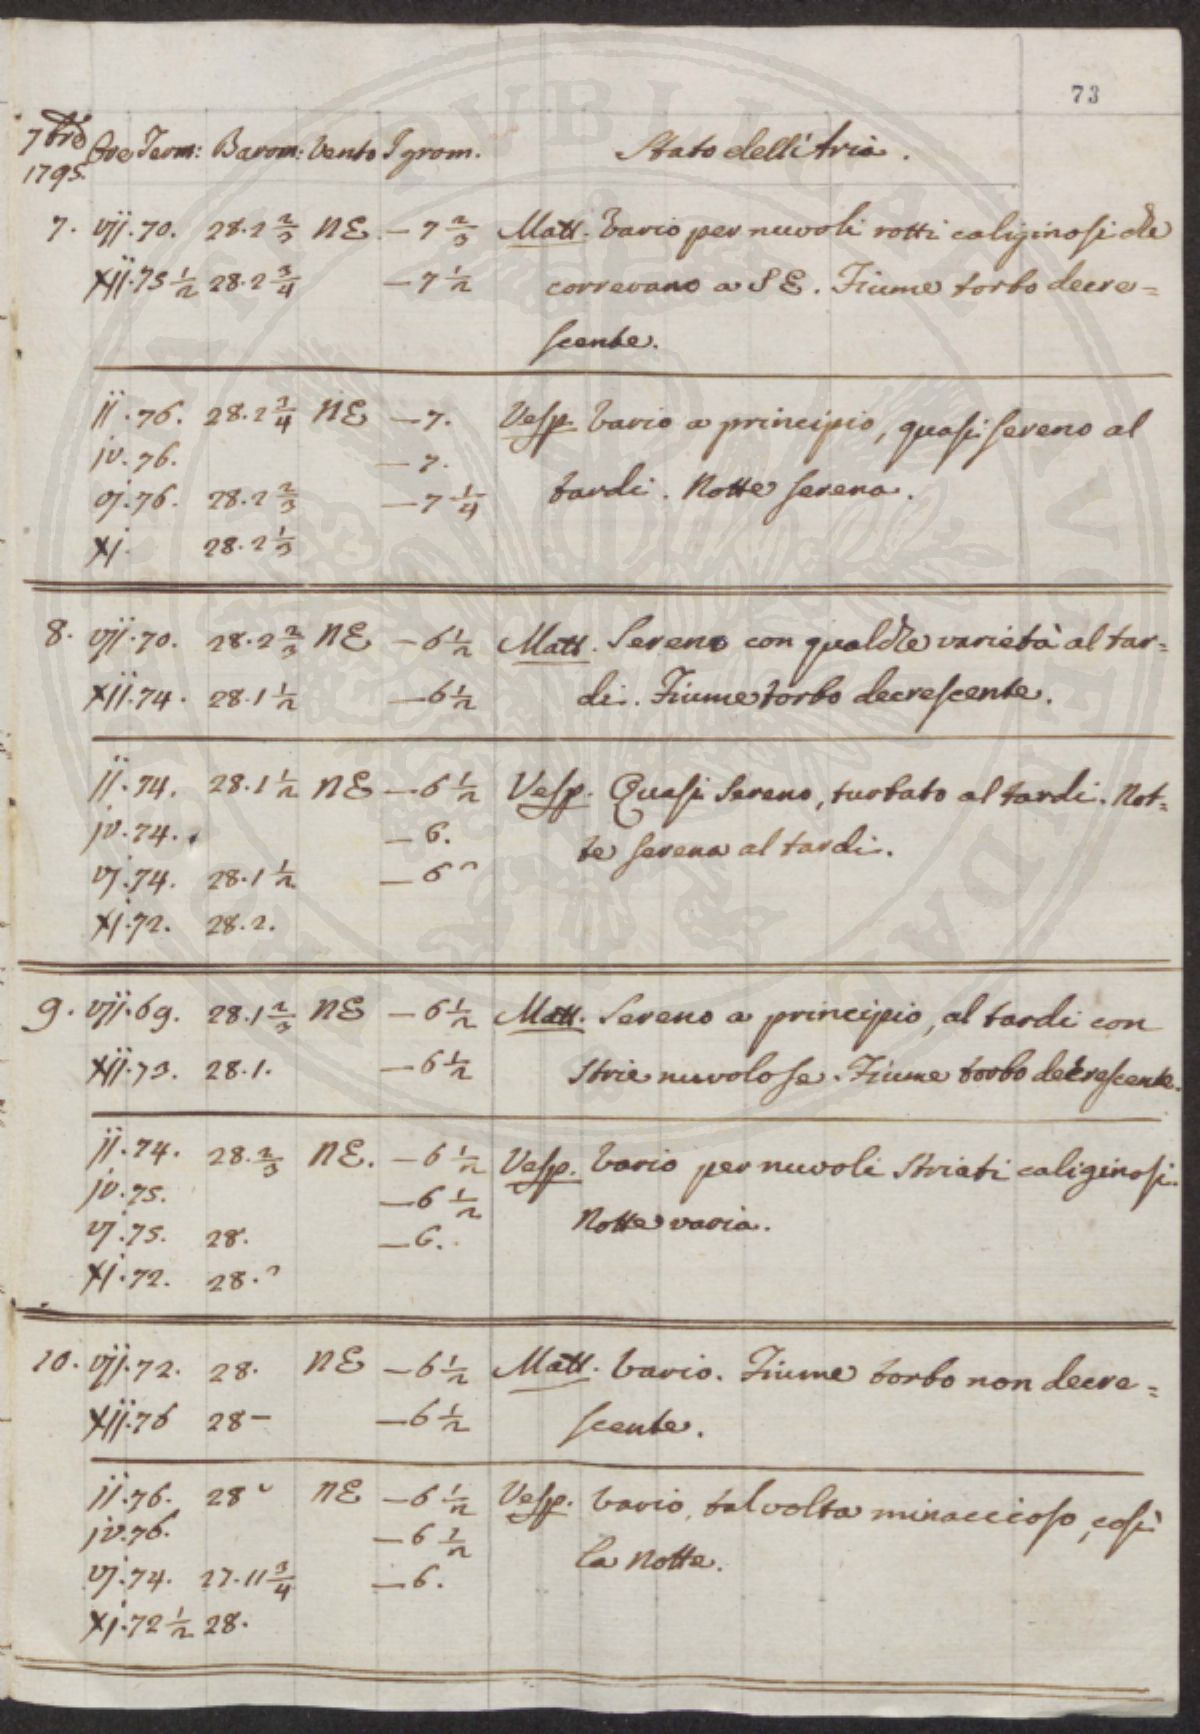 73
7bre Ore Term: Barom: Vento Igrom. Stato dell'Aria.
1795.
7. vij. 70. 28. 2 2/3 NE — 7 2/3 Matt. Vario per nuvoli rotti caliginosi che
xij. 75 1/2 28. 2 3/4 — 7 1/2 correvano a SE. Fiume torbo decre=
scente.
ij. 76. 28. 2 3/4 NE — 7. Vesp. Vario a principio, quasi sereno al
iv. 76. — 7.
vj. 76. 28. 2 2/3 — 7 1/4 tardi. Notte serena.
xj. 28. 2 1/3
8. vij. 70. 28. 2 2/3 NE — 6 1/2 Matt. Sereno con qualche varietà al tar=
xij. 74. 28. 1 1/2 — 6 1/2 di. Fiume torbo decrescente.
ij. 74. 28. 1 1/2 NE — 6 1/2 Vesp. Quasi sereno, turbato al tardi. Not=
iv. 74. — 6. te serena al tardi.
vj. 74. 28. 1 1/2 — 6
xj. 72. 28. 2.
9. vij. 69. 28. 1 2/3 NE — 6 1/2 Matt. Sereno a principio, al tardi con
xij. 73. 28. 1. — 6 1/2 strie nuvolose. Fiume torbo decrescente.
ij. 74. 28. 2/3 NE. — 6 1/2 Vesp. Vario per nuvoli striati caliginosi.
iv. 75. — 6 1/2 Notte varia.
vj. 75. 28. — 6.
xj. 72. 28.
10. vij. 72. 28. NE — 6 1/2 Matt. Vario. Fiume torbo non decre=
xij. 76 28 — — 6 1/2 scente.
ij. 76. 28 NE — 6 1/2 Vesp. Vario, talvolta minaccioso, così
iv. 76. — 6 1/2 la notte.
vj. 74. 27. 11 3/4 — 6.
xj. 72 1/2 28.